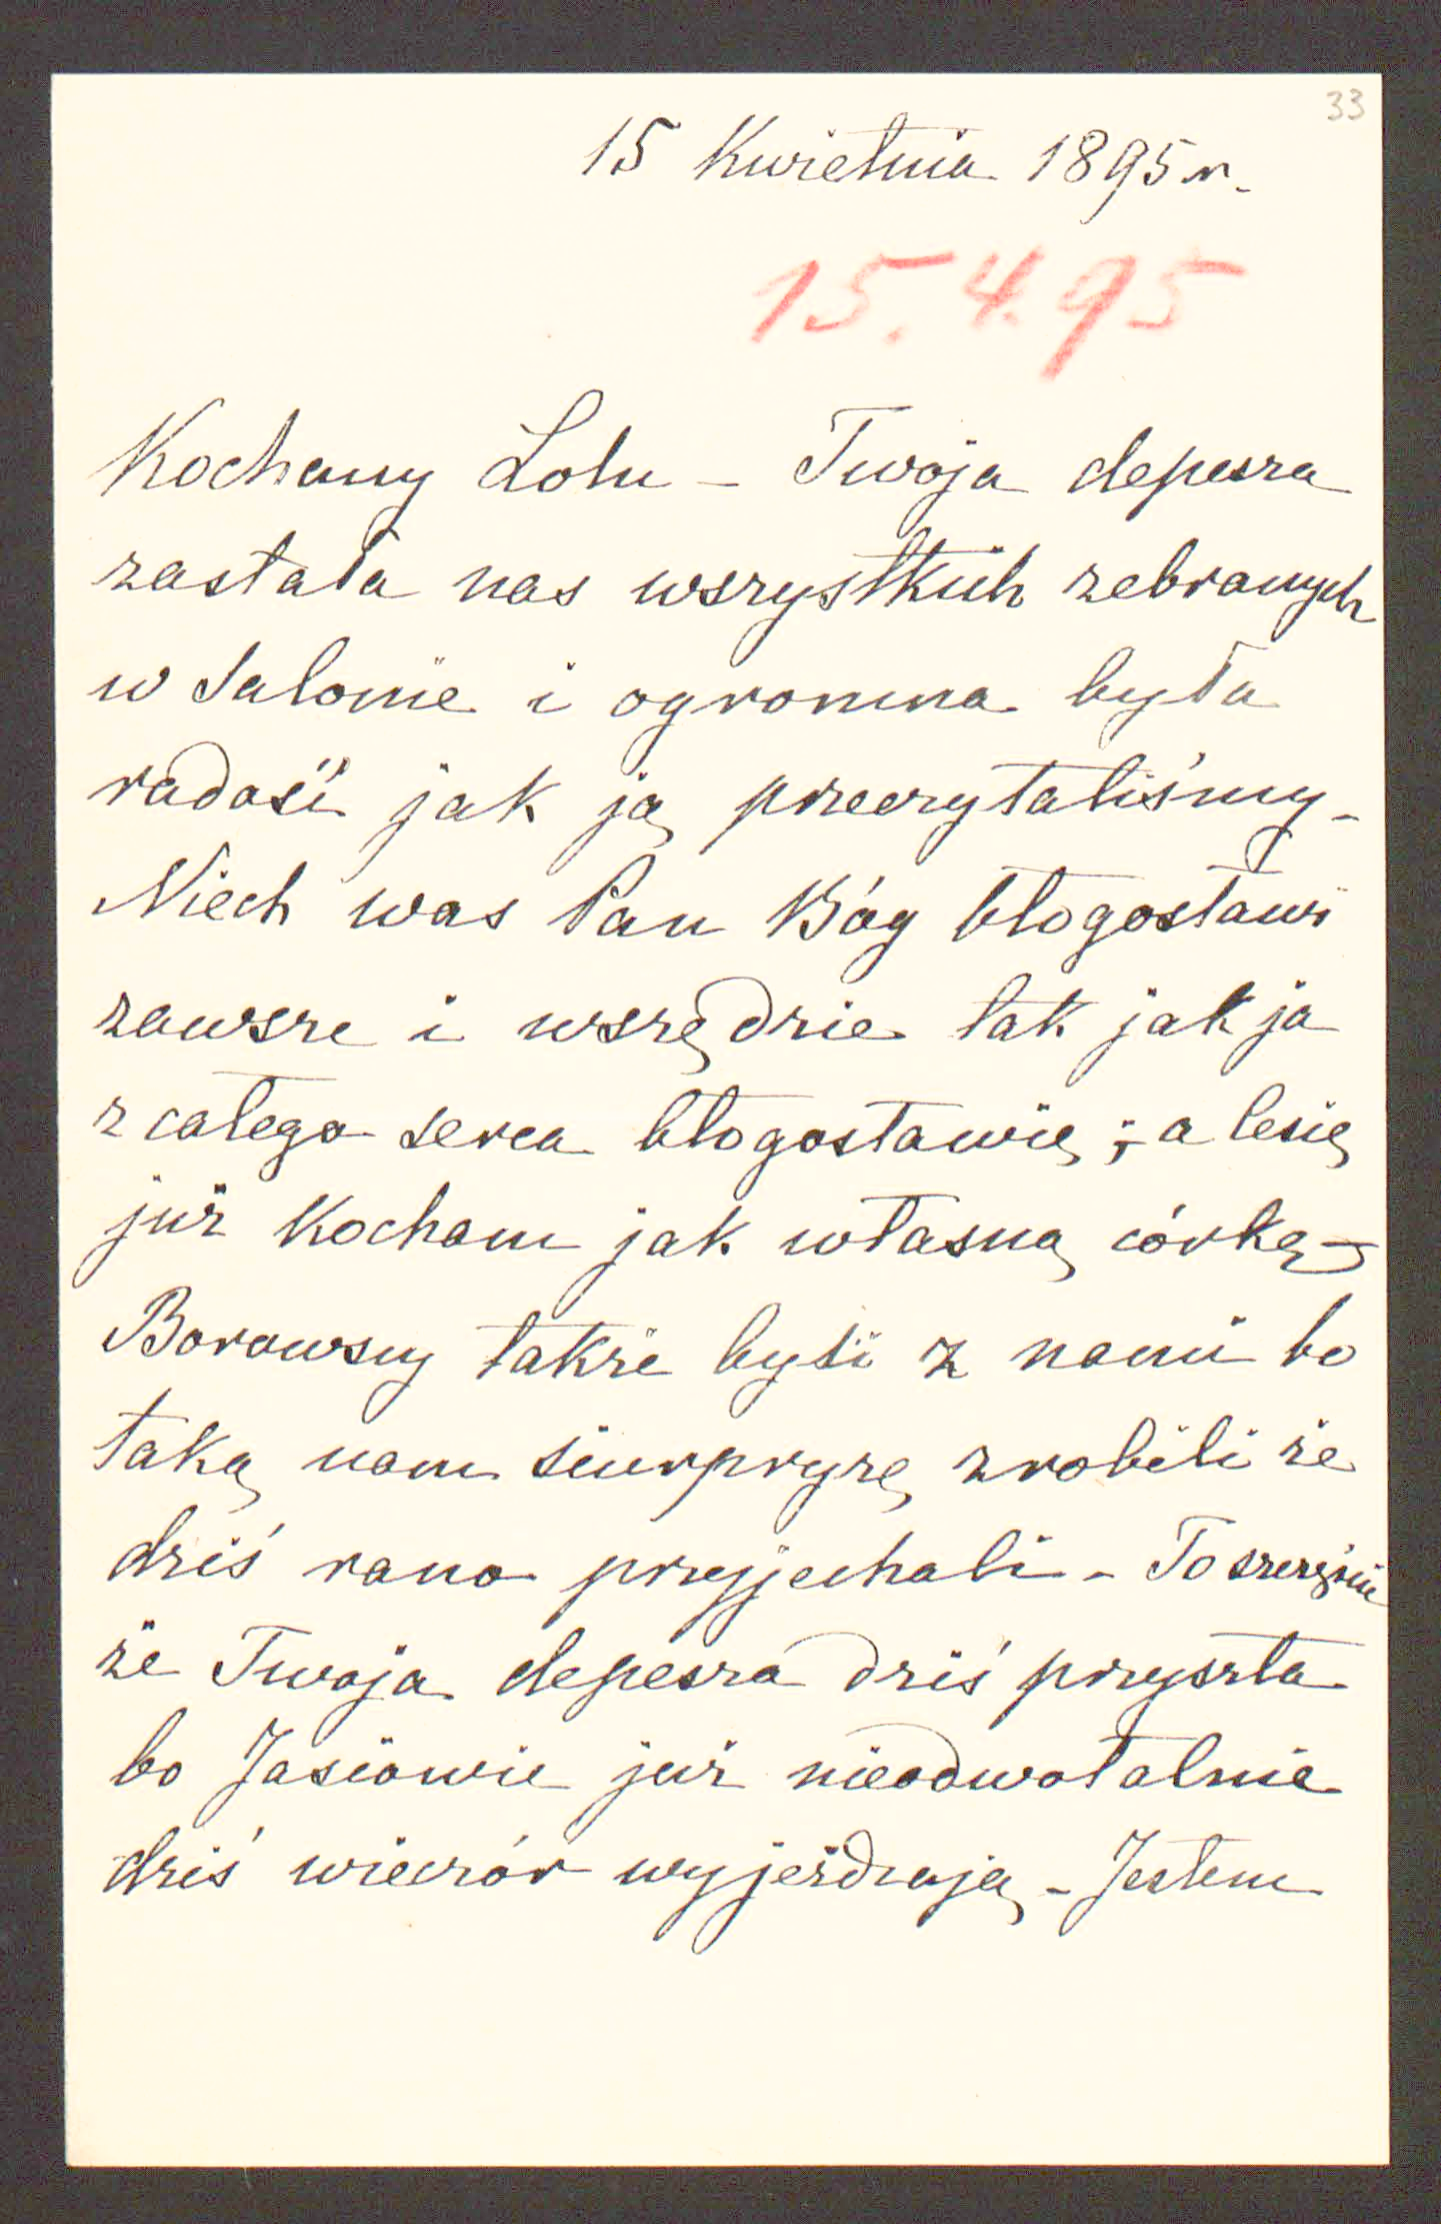 33
15 Kwietnia 1895 r.
15.4.95
Kochany Lolu – Twoja depesza
zastała nas wszystkich zebranych
w salonie i ogromna była
radość jak ją przeczytaliśmy –
Niech was Pan Bóg błogosławi
zawsze i wszędzie tak jak ja
z całego serca błogosławię; a Lesię
już kocham jak własną córkę –
Borowscy także byli z nami bo
taką nam siurpryzę zrobili że
dziś rano przyjechali – To szczęście
że Twoja depesza dziś przyszła
bo Jasiowie już nieodwołalnie
dziś wieczór wyjeżdżają – Jestem